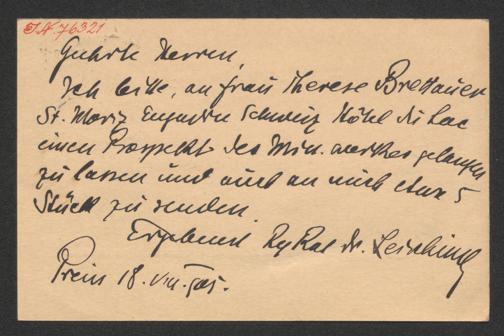 IN 76321
Geehrte Herren,
Ich bitte, an Frau Therese Brettauer
St. Moriz Engadin Schweiz Hôtel du Lac
einen Prospekt des Min. werkes gelangen
zu lassen und auch an mich etwa 5
Stück zu senden.
Ergebenst RgRat Dr. Leisching
18. VIII. 905.